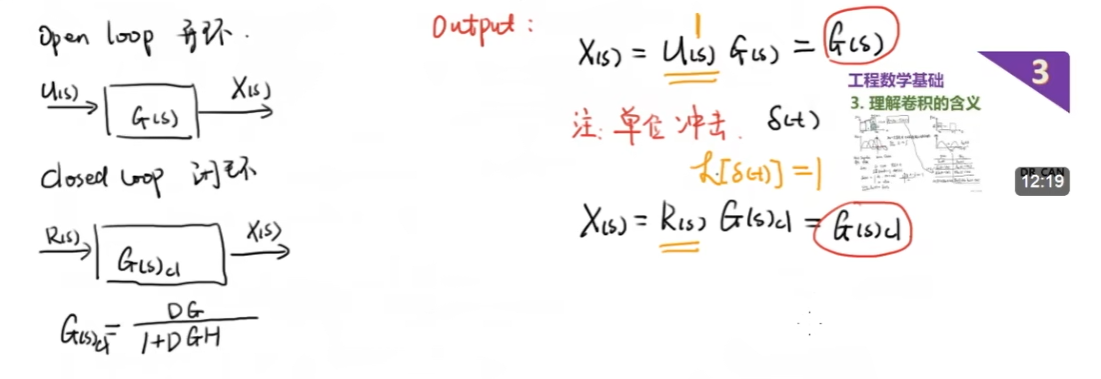 Open loop 开环.
U(s)
G(s)
X(s)
Closed loop 闭环
R(s)
G(s)cl
X(s)
G(s)cl = DG / 1+DGH
Output:
1
X(s) = U(s) G(s) = G(s)
注: 单位冲击. δ(t)
L[δ(t)] = 1
X(s) = R(s) G(s)cl = G(s)cl
3
工程数学基础
3. 理解卷积的含义
DR_CAN
12:19